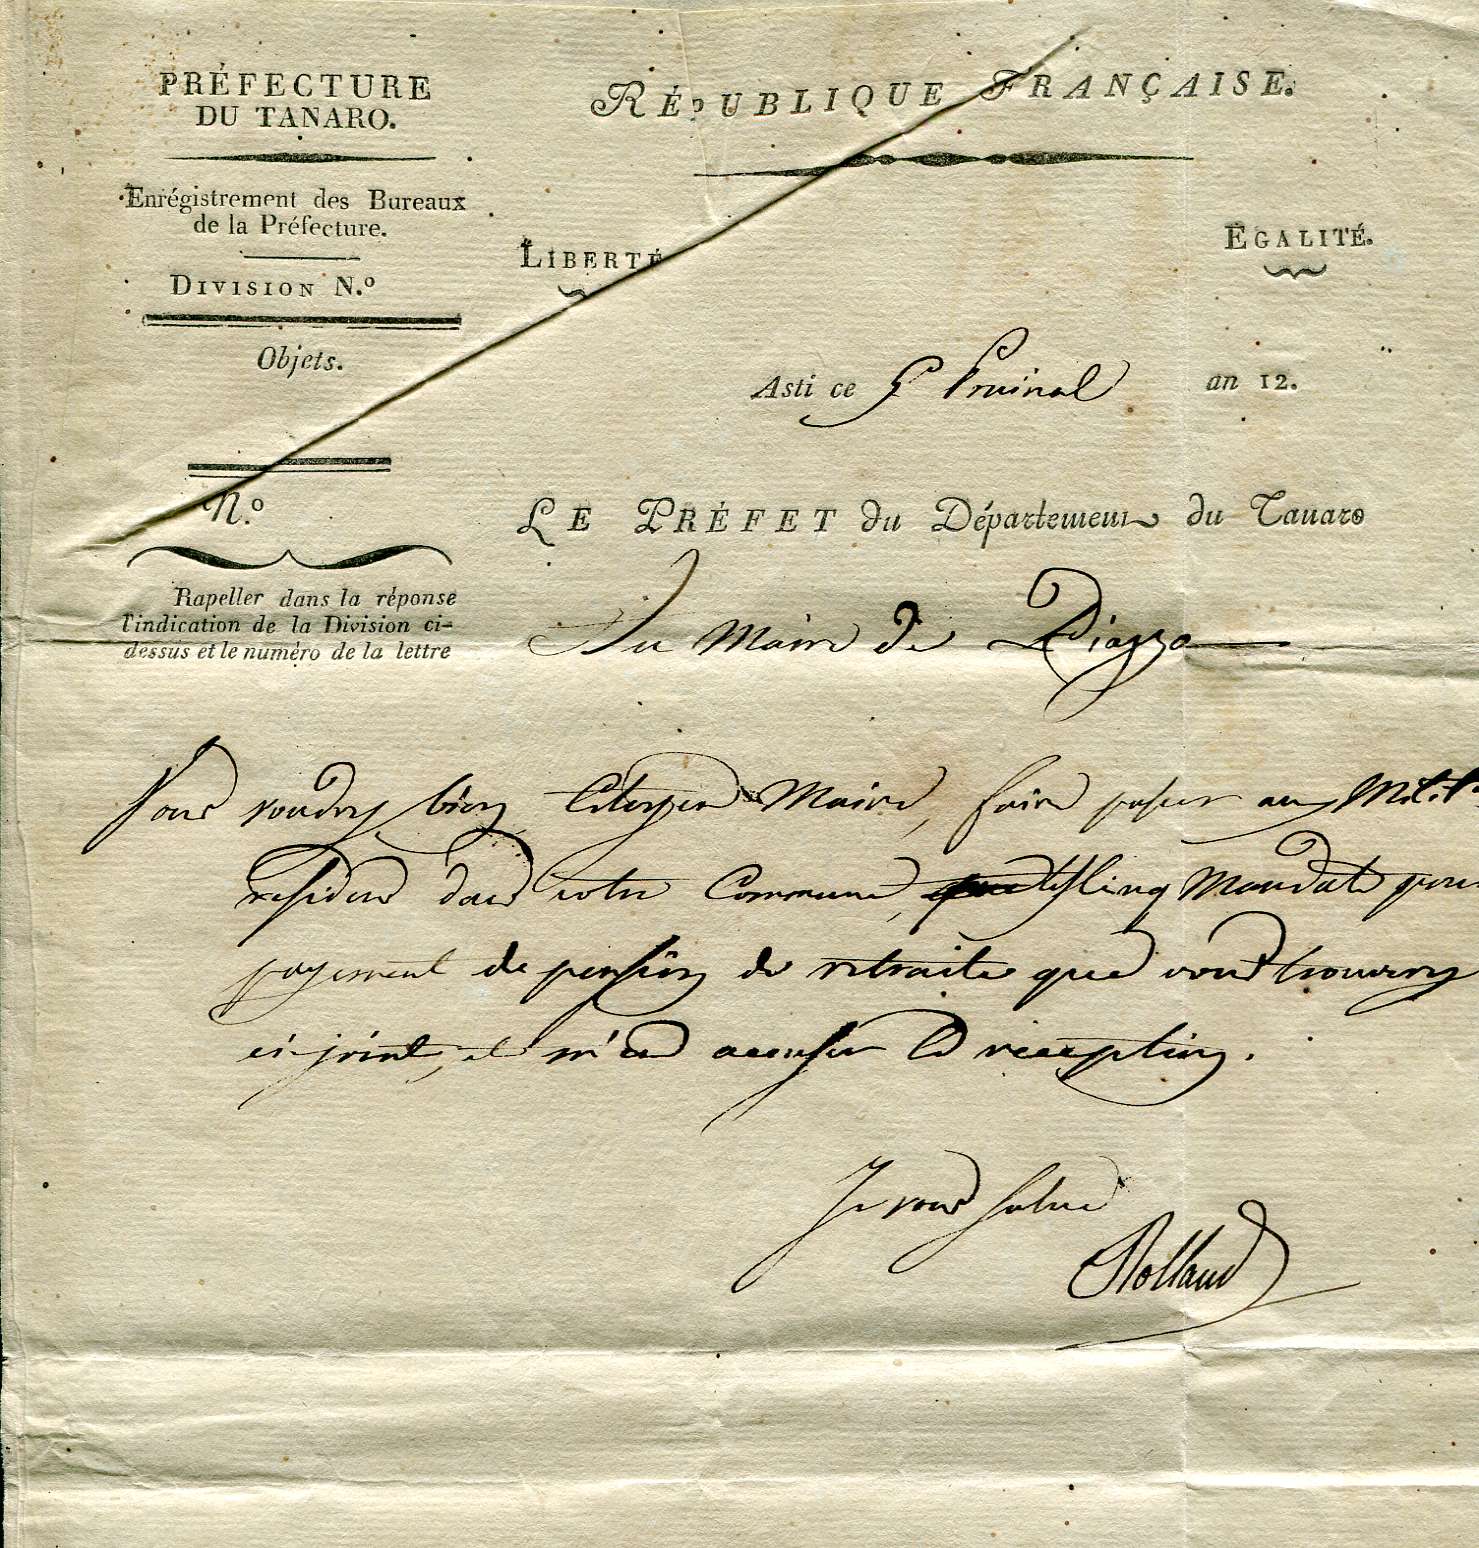 PRÉFECTURE
DU TANARO.
Enrégistrement des Bureaux
de la Préfecture.
DIVISION N.º
Objets.
N.º
Rapeller dans la réponse
l'indication de la Division ci-
dessus et le numéro de la lettre
RÉPUBLIQUE FRANÇAISE.
LIBERTÉ
EGALITÉ.
Asti ce Prairial an 12.
LE PRÉFET du Département du Tanaro
Au Maire de Piazzo
Vous voudrez bien, Citoyen Maire, faire passer aux Milit.
residens dans votre Commune, les cinq Mandats pour
payement de pension de retraite que vous trouverez
ci-joint, et m'en accuser la reception.
Je vous salue
Rolland